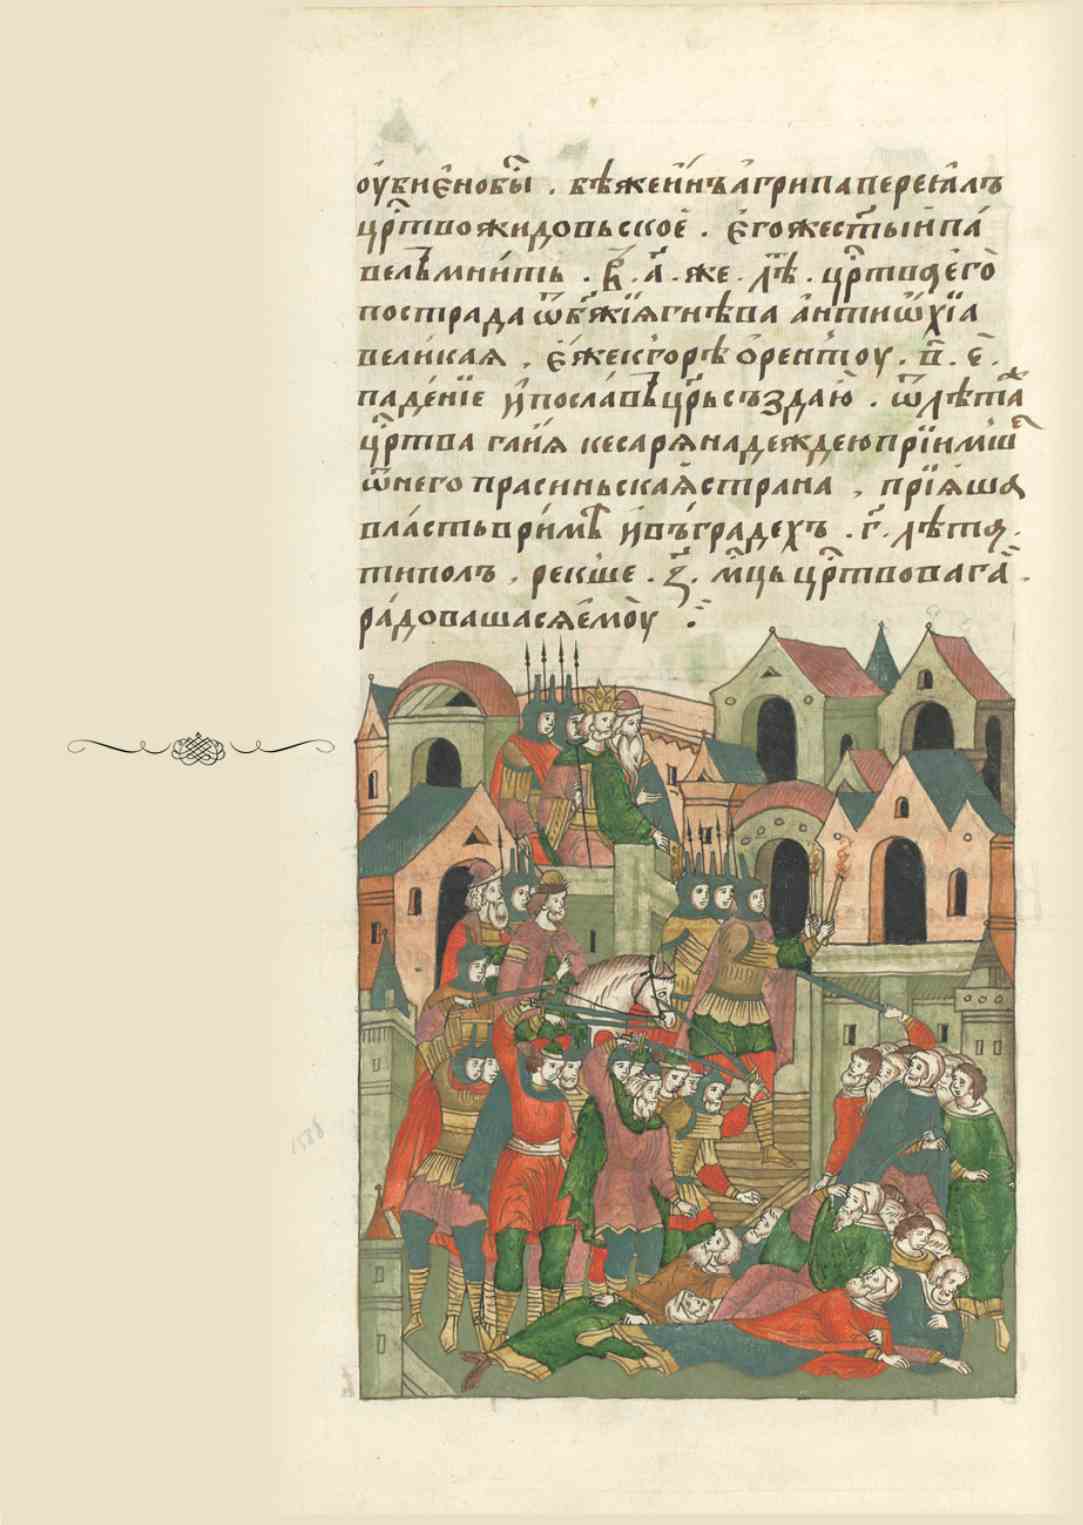 оу҆бие́нобы́с . бѣжеи҆и҆нъа҆грипапереꙗ҆лъ
цр҃ствожидовьское҆ . е҆гожест҃ыи҆па́
велъмни́ть . в҃ . а҃ . же . лѣ . цр҃тваего̀
пострадаѿбж҃їягнѣва а҆нтиѡ҆хїа
вели́кая . е҆жексгорѣ о҆рентоу . в҃ . е҃ .
паде́нїе и҆посла́въцр҃ьсъзда́ю̀ . ѿлѣта
цр҃тва гаи́я кесаря́надеждеюпрїи́мш
ѿнего прасиньскаѧ҆страна , прїѧ́ша
вла́стьври́мѣ и҆въ́градехъ . г҃ . лѣта .
типолъ . рекше . з҃ . мц҃ь цр҃твовага .
ра́довашасяе҆мо̀у .